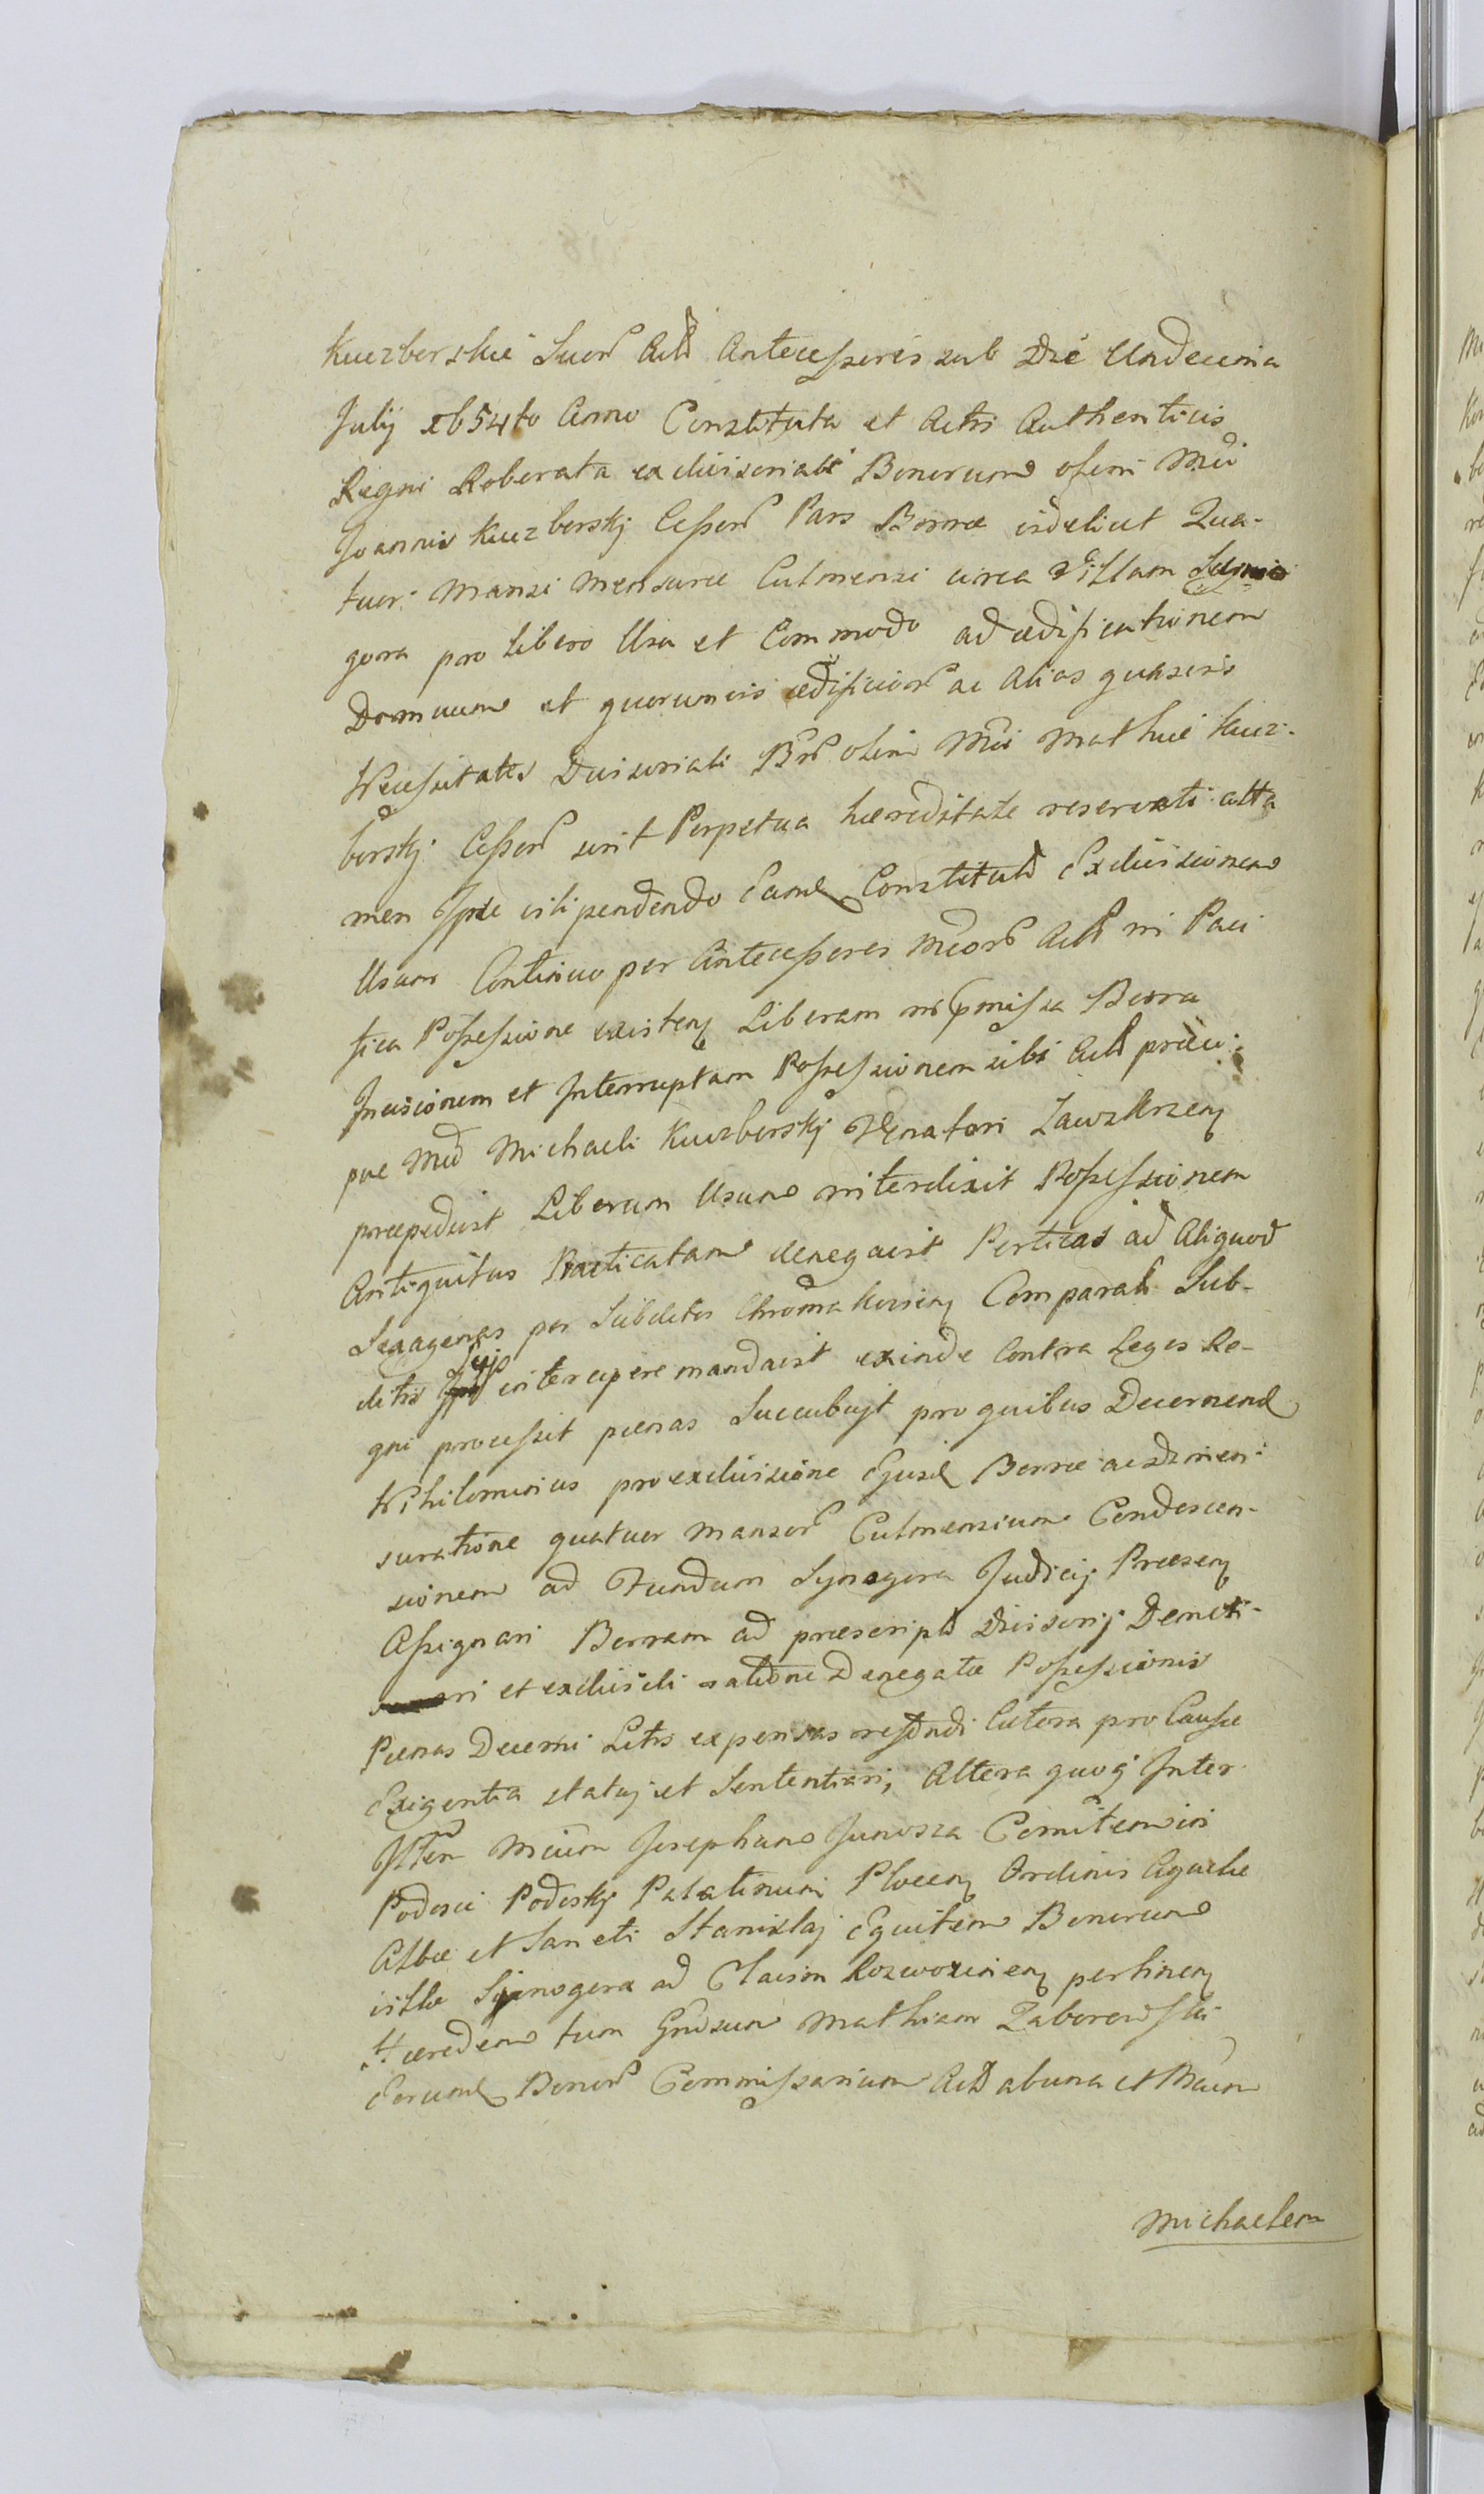 Kuczborskie Suor Actt Antecessores sub Die Undecima
Julij 1654to Anno Constituta et Actis Authenticis
Regni Roborata exdivisoriali Bonorum olim Mci
Joannis Kuczborskj Cessor Pars Borræ videlicet Qua-
tuor Mansi mensuræ Culmensi circa Villam
gora pro libero Usu et Commodo ad ædificationem
Domuum et quorumvis ædificior ac alias quasvis
Necessitates Divisoriali Bnr olim Mci Mathiæ Kucz-
borskj Cessor sunt Perpetua hæreditate reservati atta
men Ipse vilipendendo Eand Constitutt Exdivisionem
Usum Continuo per Antecessores Mcor Actt in Paci
fica Possessione existen Liberam in pmissa Borra
Incisionem et Interruptam Possessionem sibi Actt præci-
pue Mco Michaeli Kuczborskj Venatori Zawzkrzen
præpedivit Liberum Usum interdixit Possessionem
Antiquitus Practicatam denegavit Perticas ad Aliquod
Sexagenas per Subditos Chromakovien Comparatt Sub-
ditis Suis intercipere mandavit exinde Contra Leges Re-
gni processit pœnas Succubuit pro quibus Decernend
Nihilominus pro exdivisione Ejusd Borræ ac Dimen-
suratione quatuor Mansor Culmensium Condescen-
sionem ad Fundum Synogora Judicij Præsen
Assignari Borram ad præscriptt Divisorij Demeti-
ri et exdividi ratione Denegatæ Possessionis
Pœnas Decerni Litis expensas refundi Cætera pro Causæ
Exigentia statuj et Sententiari, Altera quoq Inter
Illtrem Mcum Josephum Junosza Comitem in
Podosie Podoskj Palatinum Plocen Ordinis Aquilæ
Albæ et Sancti Stanislaj Equitem Bonorum
villæ Synogora ad Clavim Rozwozinien pertinen
Hæredem tum Gnosum Mathiam Zaborowski
Eorund Bonor Commissarium Actt ab una et Mcum
Michaelem